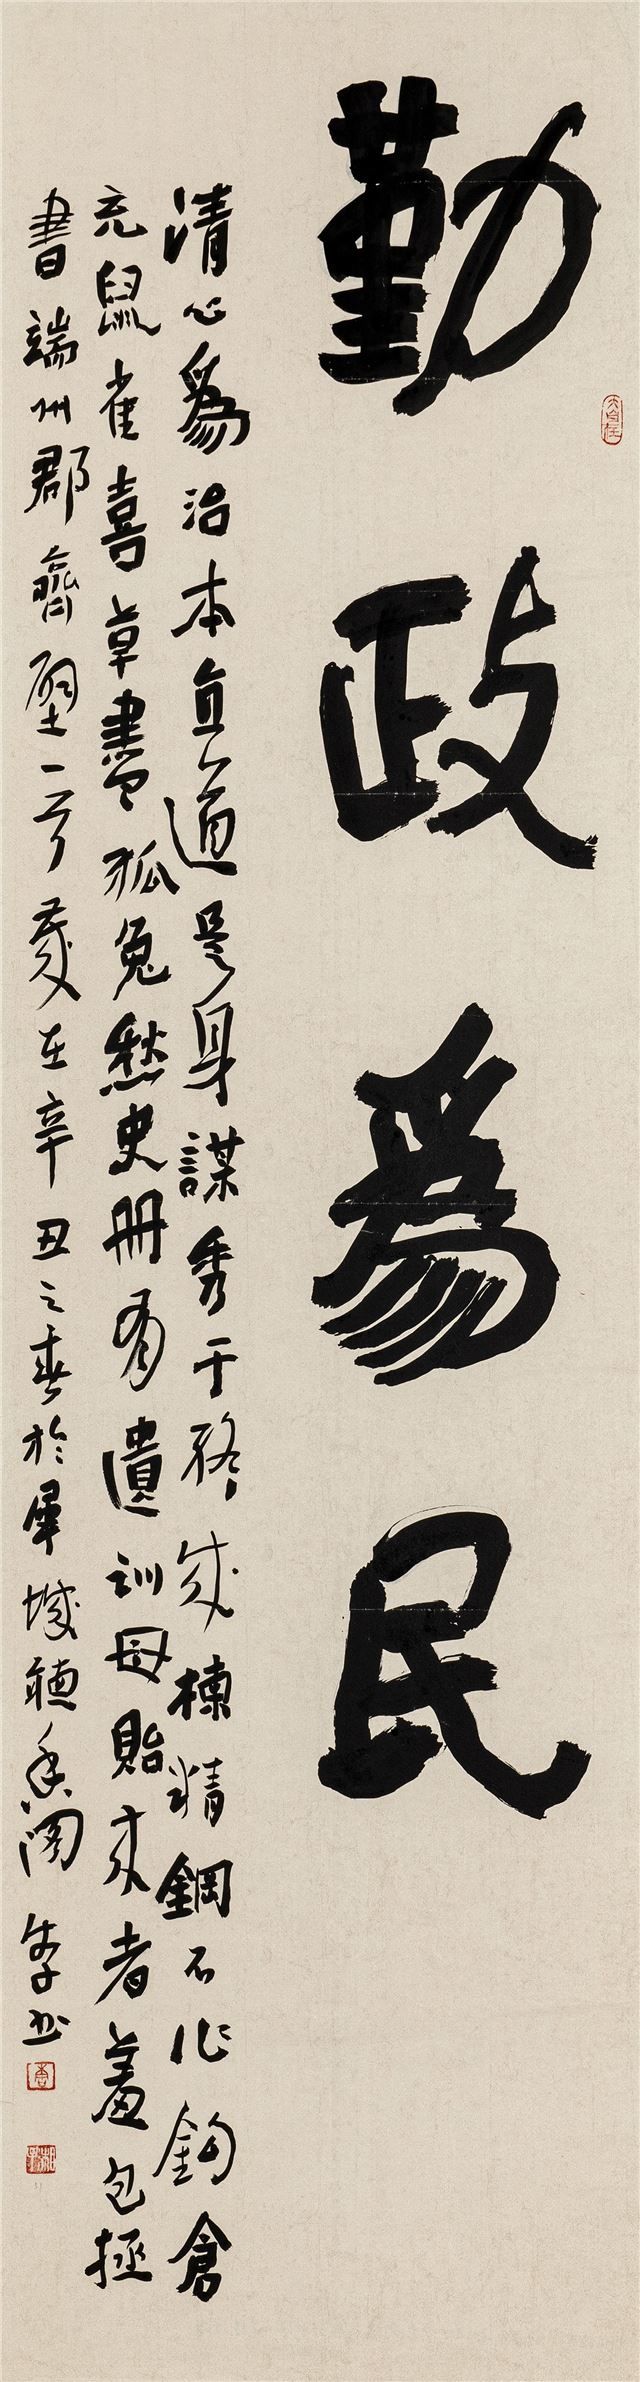 勤政為民
清心為治本直道是身謀秀干終成棟精鋼不作鉤倉
充鼠雀喜草盡狐兔愁史冊有遺訓毋貽来者羞包拯
書端州郡齊壁一首歲在辛丑之春於犀城聽香閣李
大自在